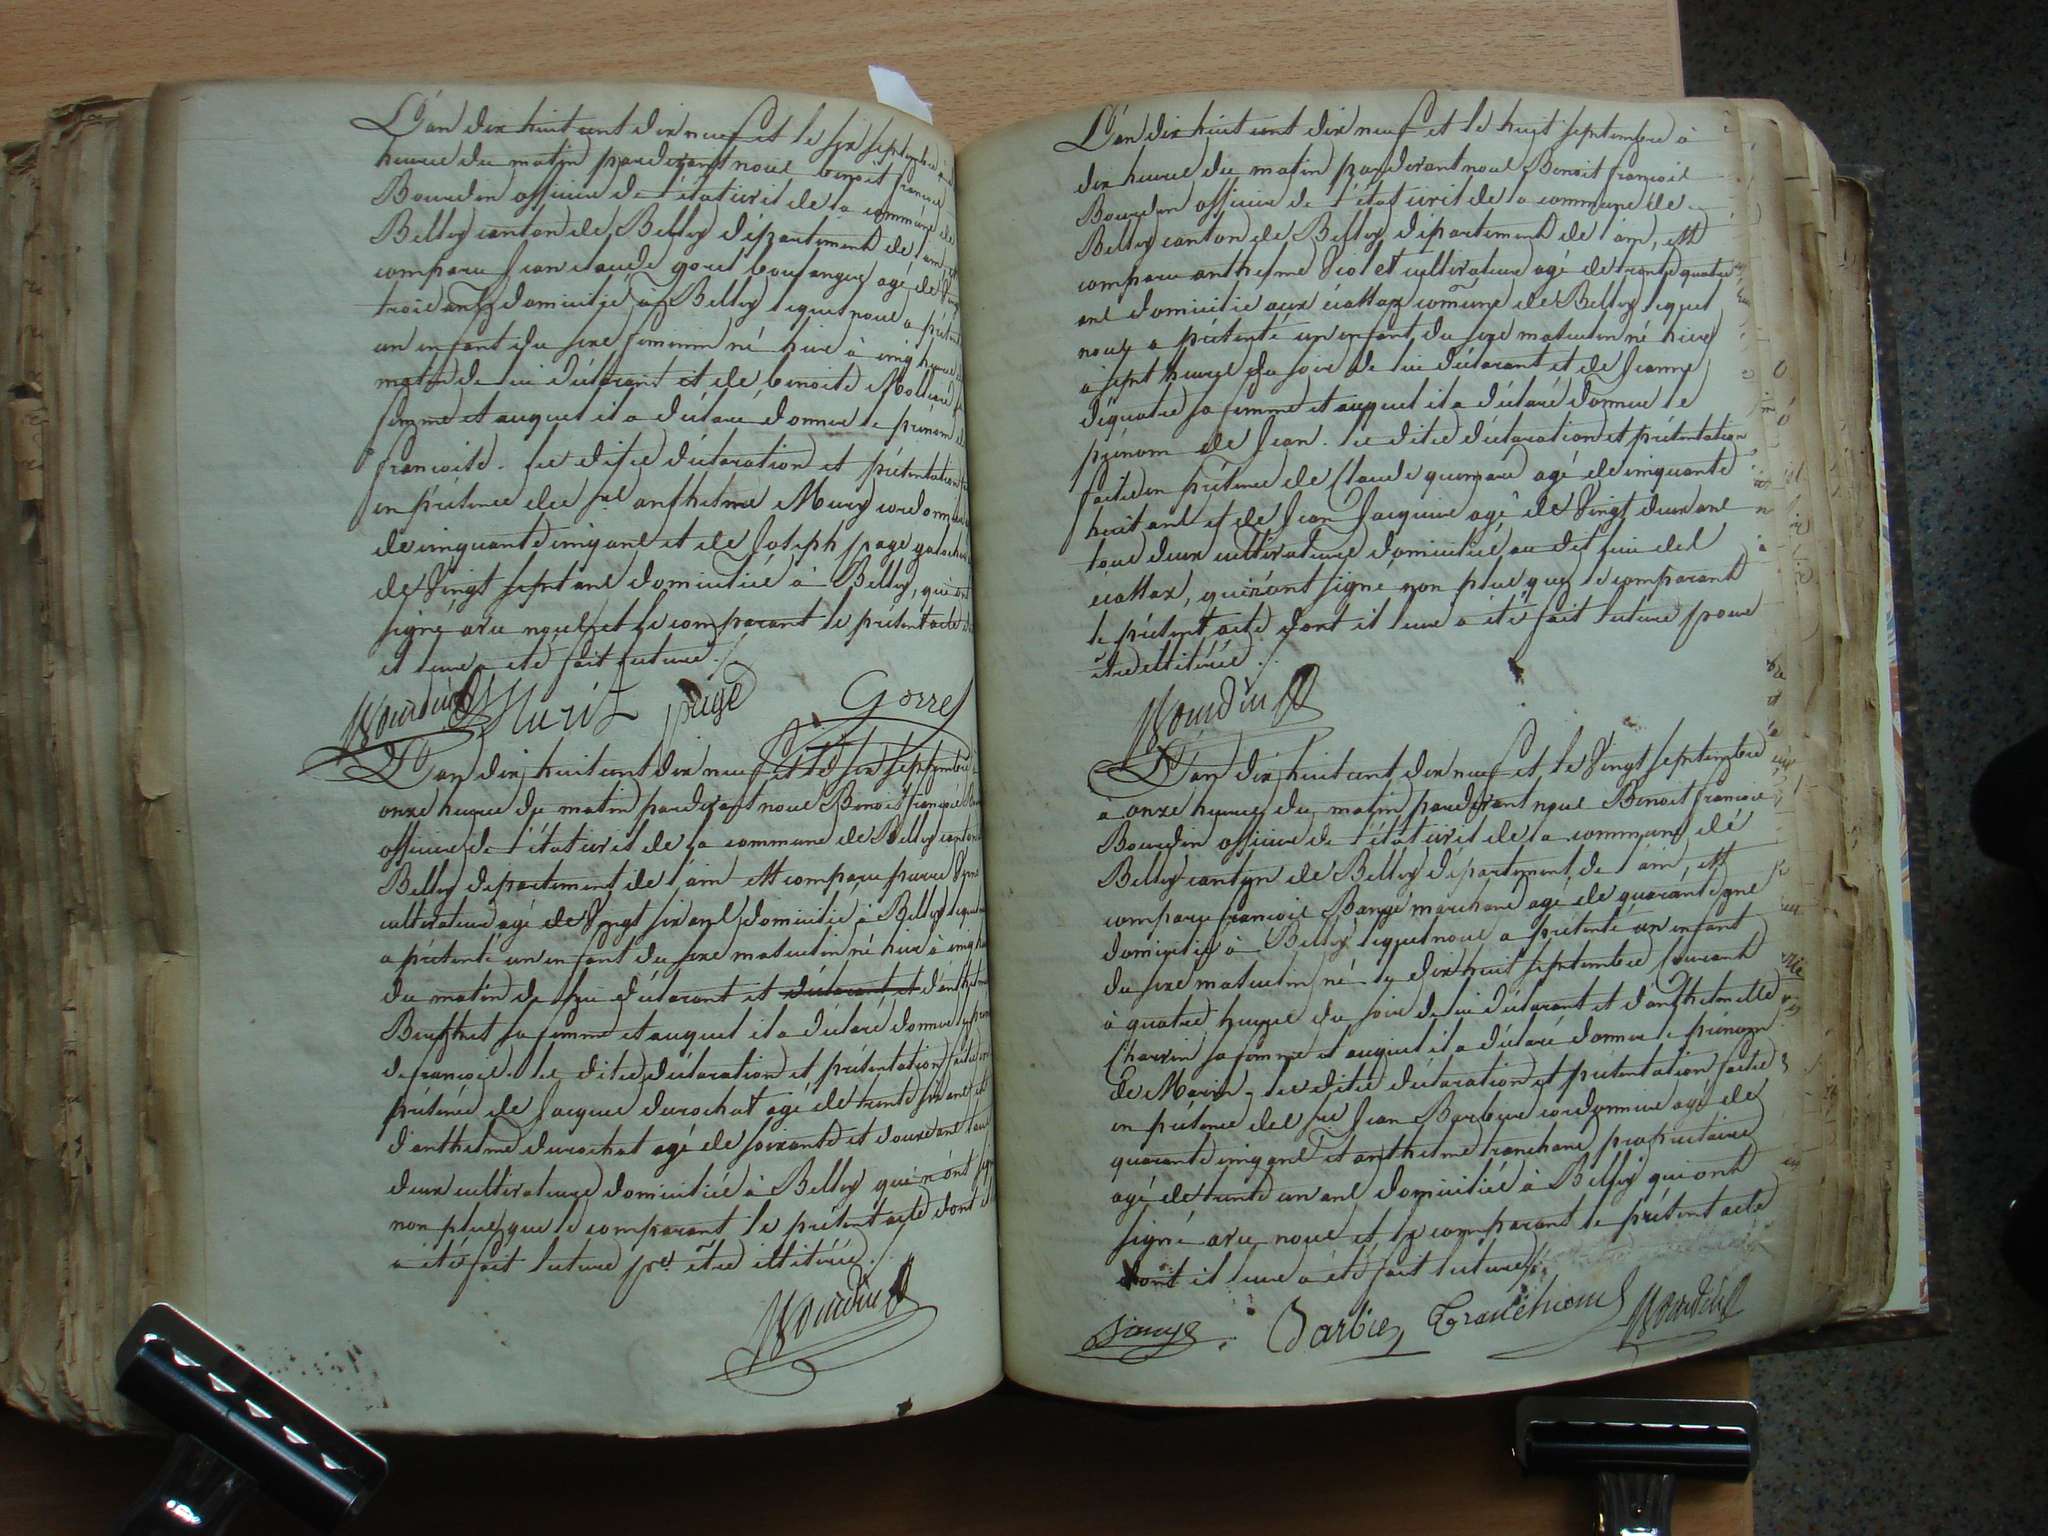 L'an dix huit cent dix neuf et le six septembre à
heures du matin pardevant nous benoit francois
Bourdin officier de l'état civil de la commune de
Belley canton de Belley département de l'ain, est
comparu Jean claude gorrel boulanger agé de Vingt
trois ans domicilié à Belley lequel nous a présenté
un enfant du sexe feminin né hier à cinq heures du
matin de lui déclarant et de benoite Molliard sa
femme et auquel il a déclaré donner le prénom de
francoise. les dites déclaration et présentation
en présence des srs anthelme Mury cordonnier
de cinquante cinq ans et de Joseph page
de Vingt sept ans domiciliés à Belley, qui ont
signé avec nous et le comparant le présent acte
et leur a été fait lecture./.
Bourdin Muril page Gorrel
L'an dix huit cent dix neuf et le six septembre à
onze heures du matin pardevant nous Benoit francois
officier de l'état civil de la commune de Belley canton
Belley département de l'ain est comparu pierre
cultivateur agé de Vingt six ans domicilié à Belley lequel
a présenté un enfant du sexe masculin né hier à cinq heures
du matin de lui déclarant et déclarant et d'anthelmette
Berthet sa femme et auquel il a déclaré donner le prénom
de francois. les dites déclaration et présentation faites en
présence de Jacques durochat agé de trente six ans et
d'anthelme durochat agé de soixante et douze ans tous
deux cultivateurs domiciliés à Belley qui n'ont signé
non plus que le comparant le présent acte dont il
a été fait lecture pr. être illitérés./.
Bourdin
L'an dix huit cent dix neuf et le huit septembre à
dix heures du matin pardevant nous Benoit francois
Bourdin officier de l'état civil de la commune de
Belley canton de Belley département de l'ain, est
comparu anthelme Violet cultivateur agé de trente quatre
ans domicilié aux écassaz comune de Belley lequel
nous a présenté un enfant du sexe masculin né hier
à sept heures du soir de lui déclarant et de Jeanne
déquatre sa femme et auquel il a déclaré donner le
prénom de Jean. les dites déclaration et présentation
faites en présence de Claude quinard agé de cinquante
huit ans et de Jean Jacquier agé de Vingt deux ans
tous deux cultivateurs domiciliés au dit lieu des
écassaz, qui n'ont signé non plus que le comparant
le présent acte dont il leur a été fait lecture pour
être illitérés./.
Bourdin
L'an dix huit cent dix neuf et le Vingt septembre
à onze heures du matin pardevant nous Benoit francois
Bourdin officier de l'état civil de la commune de
Belley canton de Belley département de l'ain, est
comparu francois Bange marchand agé de quarante ans
domicilié à Belley lequel nous a présenté un enfant
du sexe masculin né le dix huit septembre Courant
à quatre heures du soir de lui déclarant et d'anthelmette
Charvin sa femme et auquel il a déclaré donner le prénom
de Marin. les dites déclaration et présentation faites
en présence des srs Jean Barbier cordonnier agé de
quarante cinq ans et anthelme tranchand propriétaire
agé de trente un ans domiciliés à Belley qui ont
signé avec nous et le comparant le présent acte
dont il leur a été fait lecture./.
Bange Barbier Tranchand Bourdin